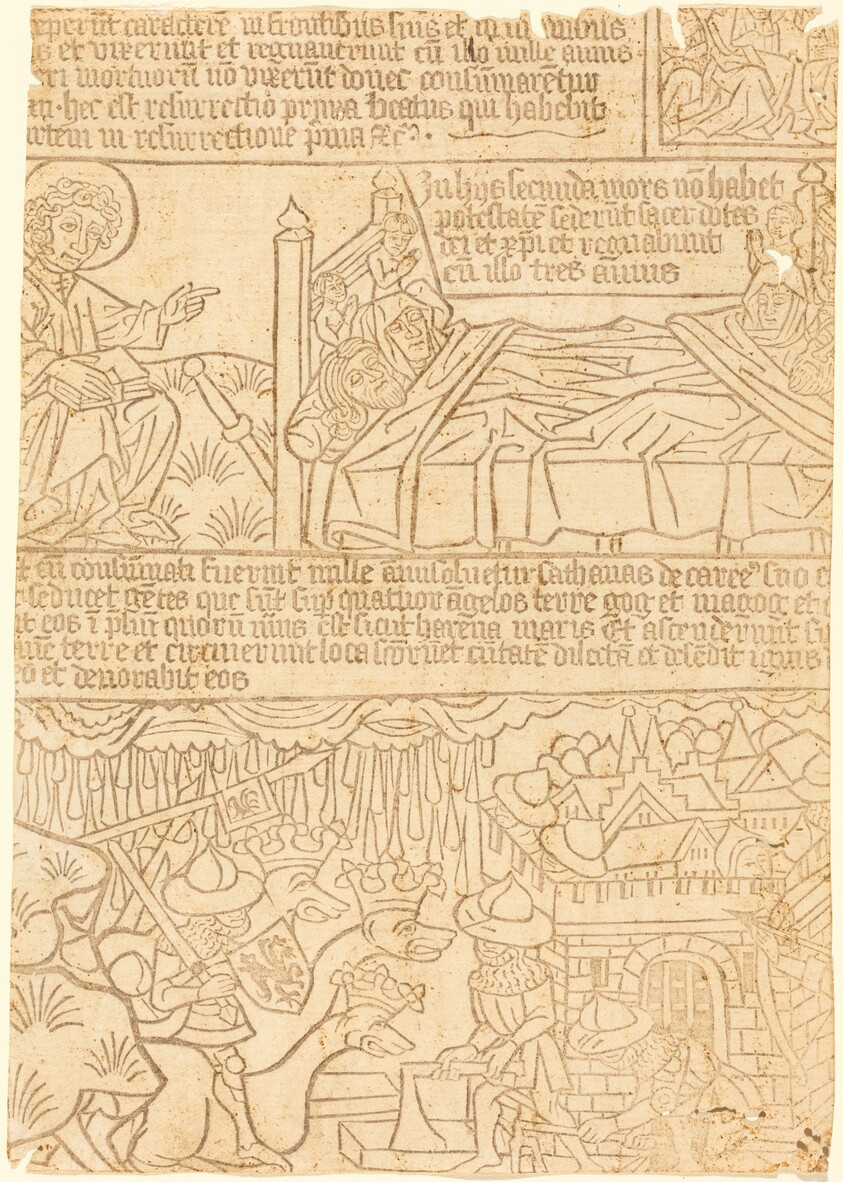 eperūt caracterē in frontibus suis et in manibus
s et vixerunt et regnauerunt cū illo mille annis
eri mortuorū nō vixerūt donec consumarētur
an · hec est resurrectio prima beatus qui habebit
artem in resurrectione pima
In hijs secunda mors nō habet
potestatē sederūt sacerdotes
dei et xpi et regnabunt
cū illo tres annis
t cū consumati fuerint mille anni soluetur sathanas de carcere suo
seducet gētes que sūt sup quatuor āgelos terre gog et magog et
it eos ī pliū quorū nūus est sicut harena maris Et ascenderunt
terre et circuierunt loca et ciuitatē dilectā et desēdit ignis
o et deuorabit eos